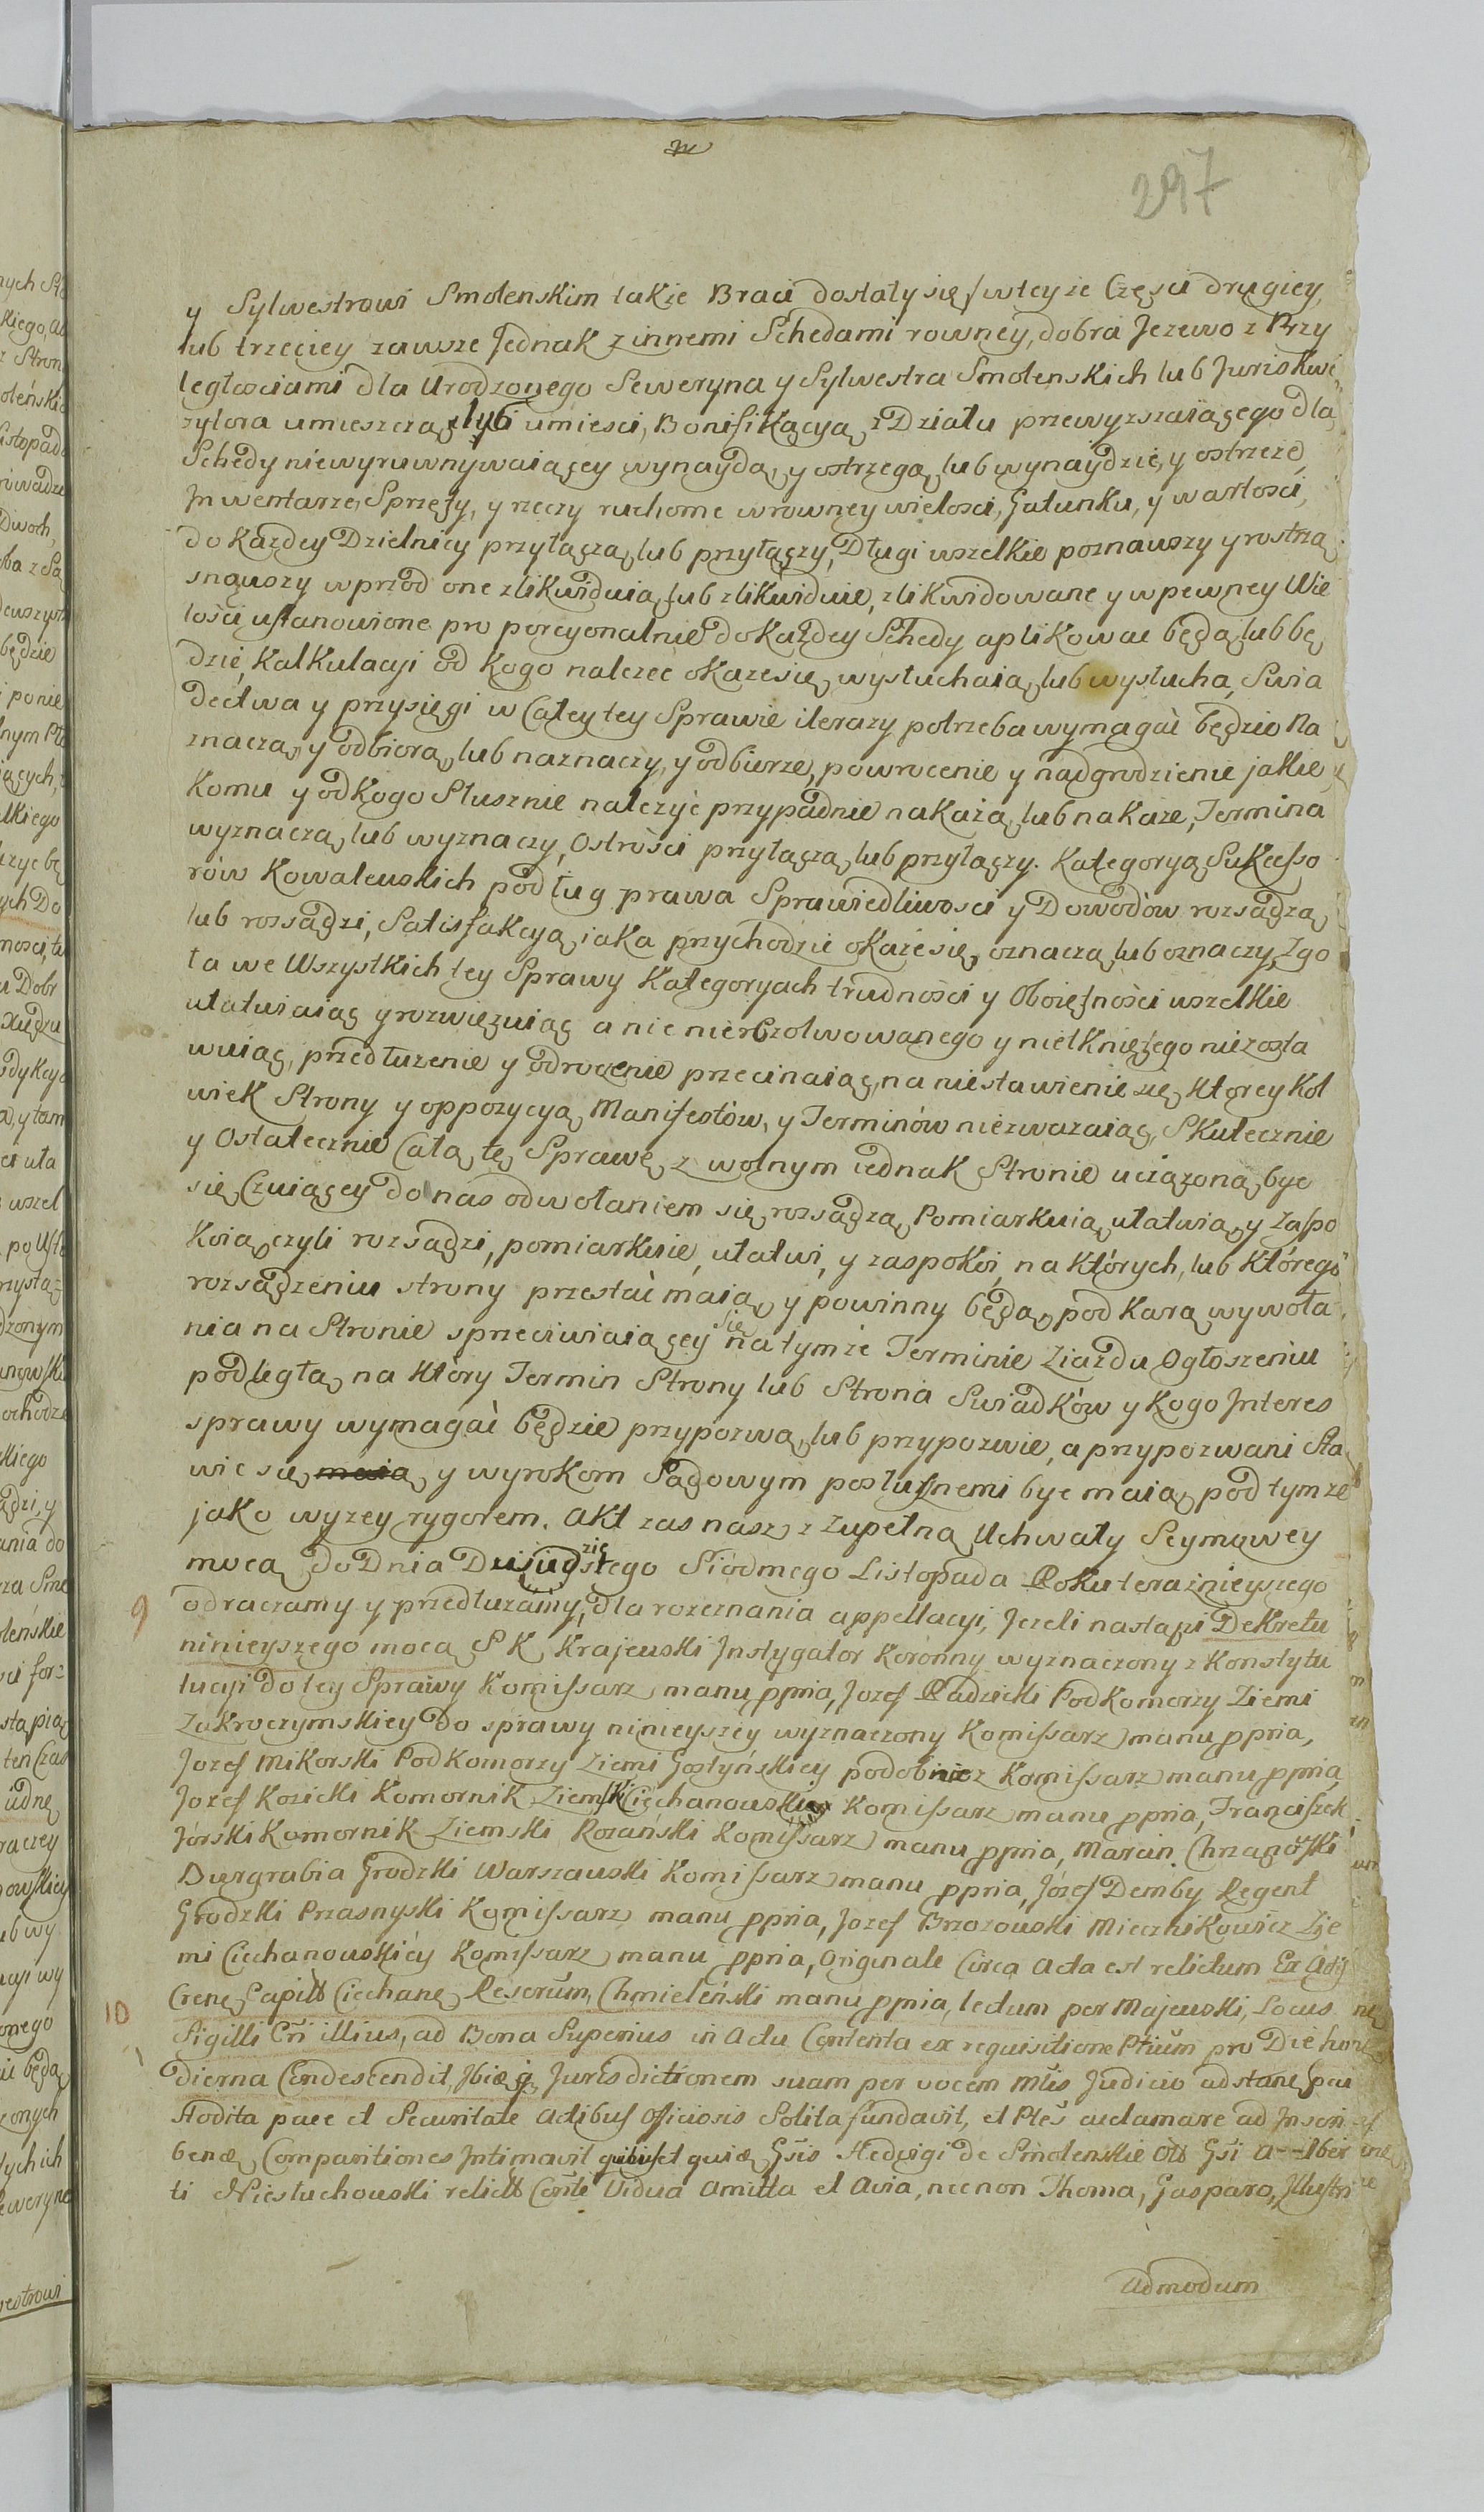 297
y Sylwestrowi Smolenskim takze Braci dostały się, w teyże Częsci drugiey,
lub trzeciey zawsze Jednak z innemi Schedami rowney, dobra Jezewo z Przy
ległosciami dla Urodzonego Seweryna y Sylwestra Smolenskich lub Juris kwi
zytora umieszczą lub umiesci, Bonifikacyą z Działu przewyzszaiącego dla
Schedy niewyruwnywaiącey wynaydą y ostrzegą lub wynaydzie, y ostrzeze,
Inwentarze, Sprzęty, y rzeczy ruchome w rowney wielosci, Gatunku, y wartosci,
do kazdey Dzielnicy przyłączą lub przyłączy, Długi wszelkie poznawszy y rostrzą
snąwszy w przod one zlikwiduią lub zlikwiduie, zlikwidowane y w pewney Wie
losci ustanowione proporcyonalnie do każdey Schedy aplikowac będą lub bę
dzie, Kalkulacyi od kogo nalezec okaze się, wysłuchaią lub wysłucha, Swia
dectwa y przysięgi w Całey tey Sprawie ile razy potrzeba wymagać będzie Na
znaczą y odbiorą lub naznaczy, y odbierze, powrocenie y nadgrodzenie jakie
Komu y od kogo Słusznie nalezyć przypadnie nakażą lub nakaże, Termina
wyznaczą lub wyznaczy, Ostrości przyłączą lub przyłączy. Kategoryą Sukcesso
rów Kowalewskich podług prawa Sprawiedliwosci y Dowodów rozsądzą
lub rozsądzi, Satisfakcyą iaka przychodzić okaże się, oznaczą lub oznaczy, Zgo
ła we Wszystkich tey Sprawy Kategoryach trudności y Oboiętności wszelkie
ułatwiaiąc y rozwięzuiąc a nic nierezolwowanego y nietkniętego nie zosta
wuiąc, przedłuzenie y odroczenie przecinaiąc, na niestawienie się którey kol
wiek Strony y oppozycyą Manifestów, y Terminów nie zwazaiąc, Skutecznie
y Ostatecznie Całą tę Sprawę z wolnym iednak Stronie uciążoną być
się Czuiącey do nas odwołaniem się rozsądzą, Pomiarkuią, ułatwią y Zaspo
koią czyli rozsądzi, pomiarkuie, ułatwi, y zaspokoi, na których, lub którego
rozsądzeniu strony przestać maią y powinny będą pod karą wywoła
nia na Stronie sprzeciwiaiącey się na tymże Terminie Ziazdu Ogłoszeniu
podległą na który Termin Strony lub Strona Swiadków y kogo Interes
sprawy wymagać będzie przypozwą lub przypozwie, a przypozwani Sta
wić się maią y wyrokom Sądowym posłusznemi być maią pod tymże
jako wyzey rygorem. Akt zas nasz z zupełną Uchwały Seymowey
mocą do Dnia Dwudziestego Siódmego Listopada Roku teraźnieyszego
9
odraczamy y przedłużamy, dla rozeznania appellacyi, Jezeli nastąpi Dekretu
ninieyszego mocą S K Krajewski Instygator Koronny wyznaczony z Konstytu
tucyi do tey Sprawy Komissarz manu ppria, Jozef Radzicki Podkomorzy Ziemi
Zakroczymskiey do sprawy ninieyszey wyznaczony Komissarz manu ppria,
Jozef Mikorski Podkomorzy Ziemi Gostyńskiey podobniez Komissarz manu ppria,
Jozef Kosicki Komornik Ziemski Ciechanowski Komissarz manu ppria, Franciszek
Jórski Komornik Ziemski Rozański Komissarz manu ppria, Marcin Chrząnoski
Burgrabia Grodzki Warszawski Komissarz manu ppria, Józef Demby Regent
Grodzki Przasnyski Komissarz manu ppria, Jozef Brzozowski Miecznikowicz Zie
mi Ciechanowskiéy Komissarz manu ppria, Originale Circa Acta est relictum Ex Actis
10
Crene Capit Ciechane Reserum, Chmieleński manu ppria, lectum per Majewski, Locus
Sigilli Cri illius, ad Bona Superius in Actu Contenta ex requisitione Ptium pro Die ho
dierna Condescendit, Ibiq Jurisdictionem suam per vocem Mtis Judicio adstane, pcu
stodita pace et Securitate Actibus Officiosis Solita fundavit, et Ptes acclamare ad Inscri
bene Comparitiones Intimavit quibus et quia Gsis Hedvigi de Smolenskie Olt Gsi A--lber
ti Niestuchowski relict Conte Vidua Amitta et Avia, necnon Thoma, Gasparo, Illustri
admodum